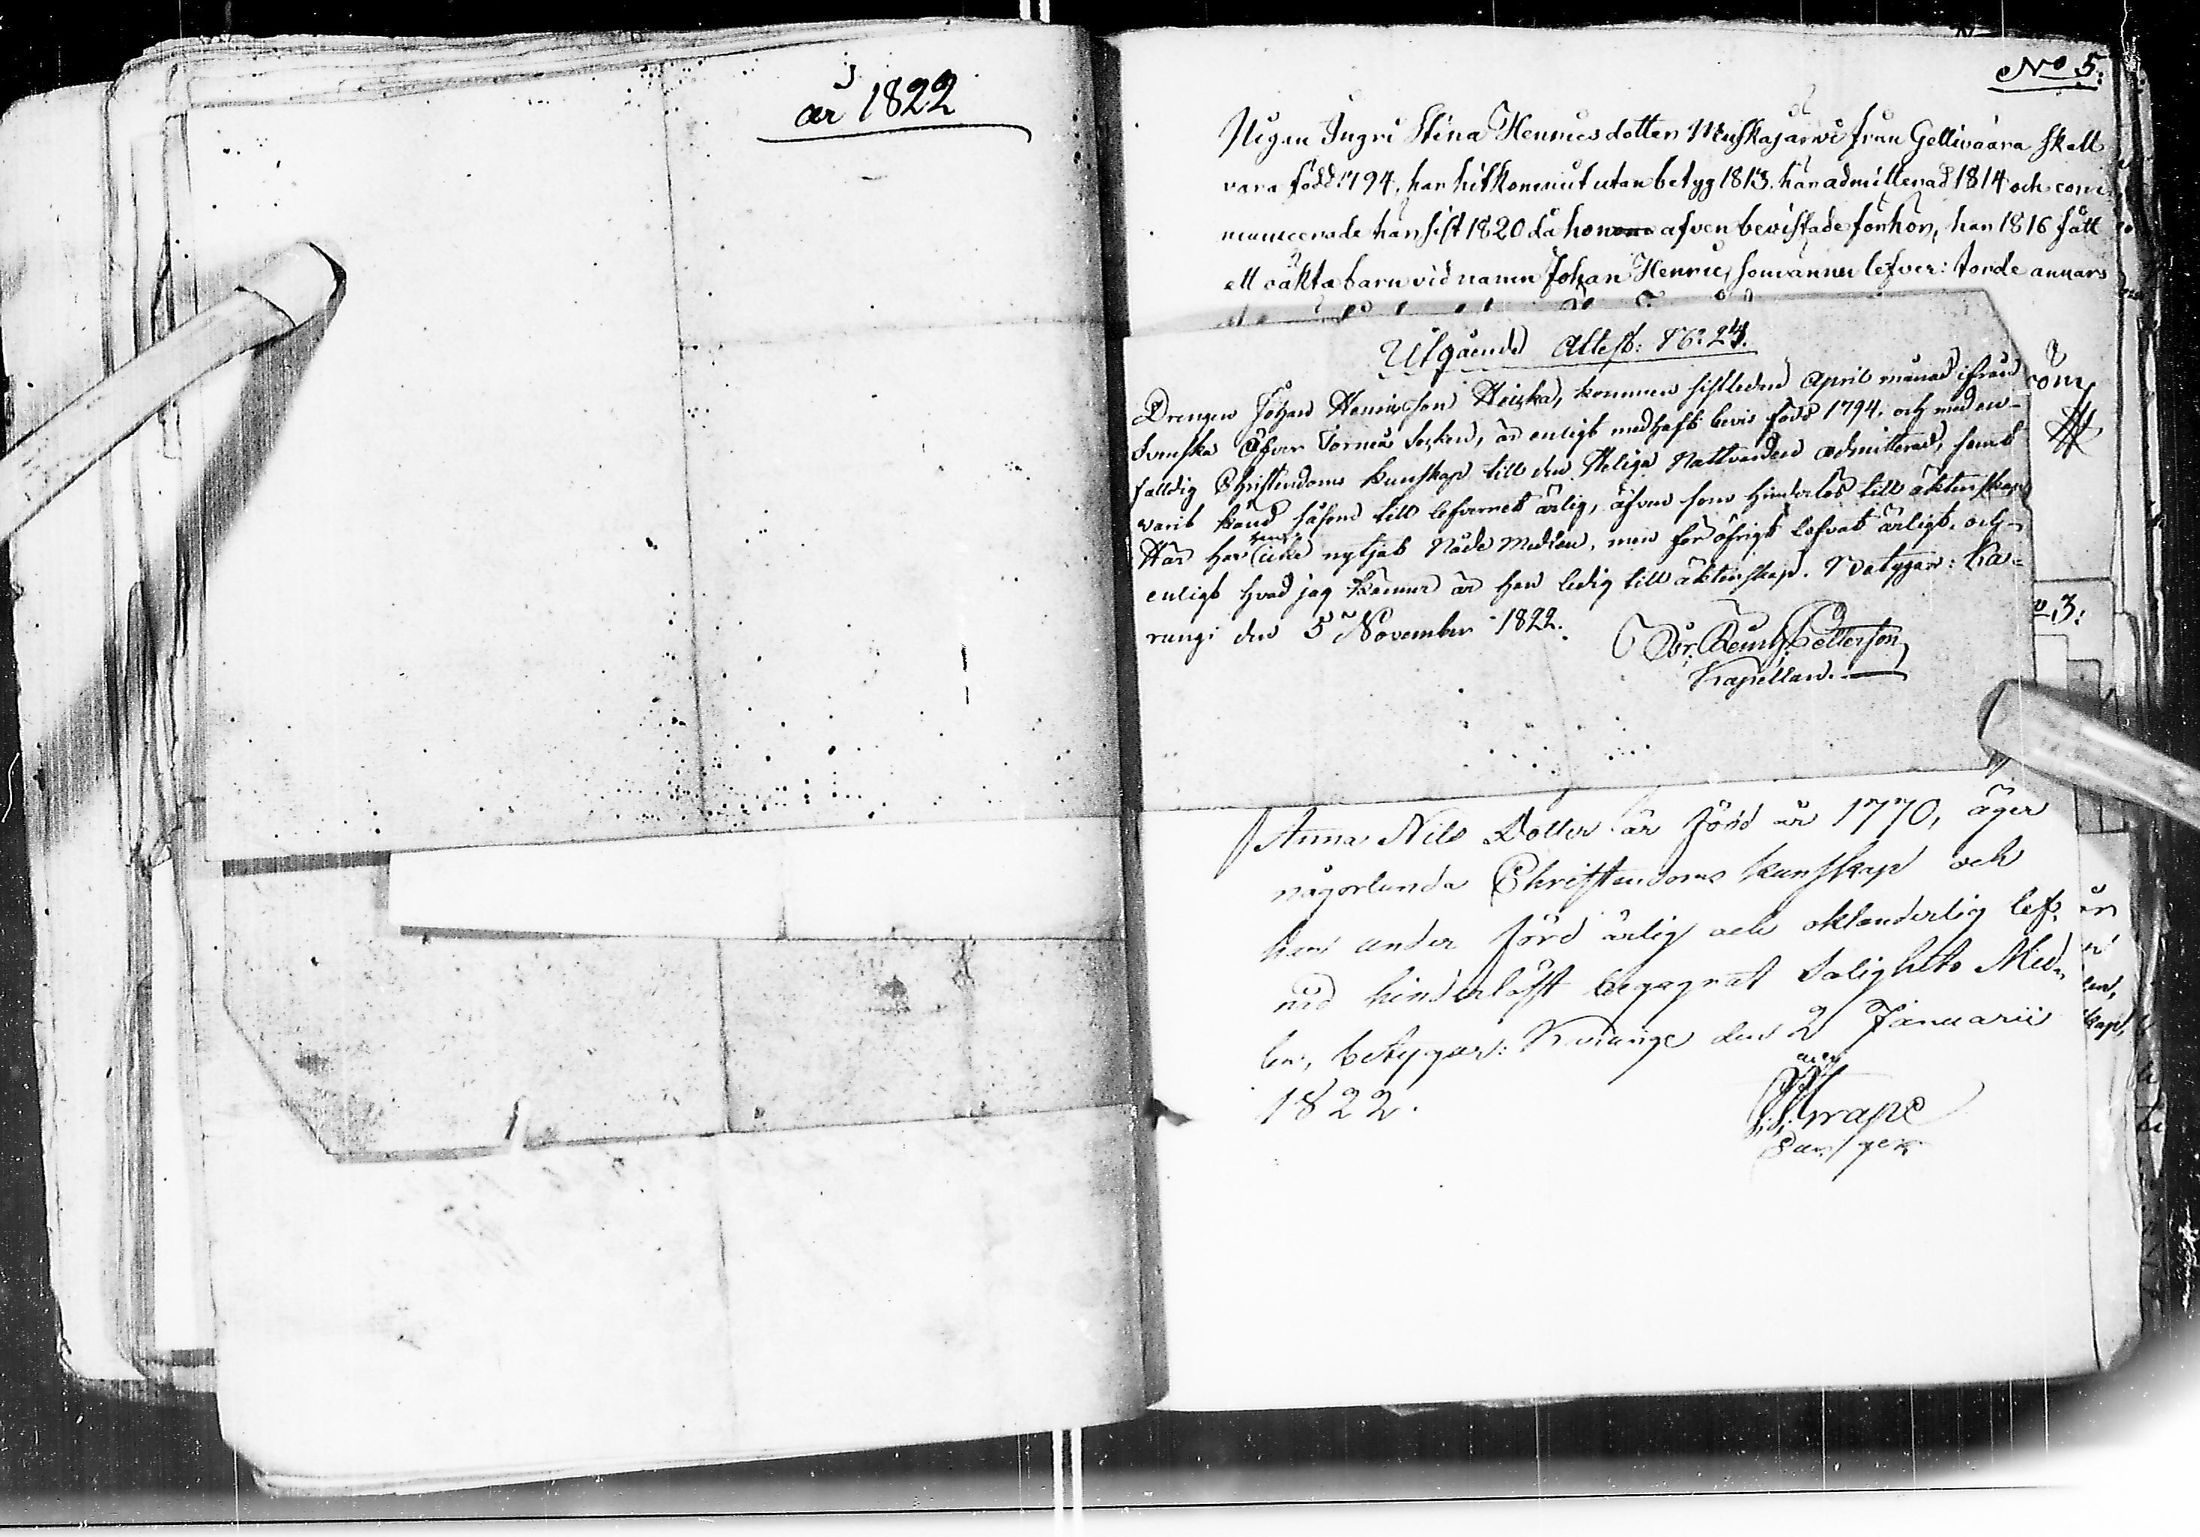 år 1822
No 5.
Pigan Ingri Stina Henricsdotter Muskajärvi från Gellivaara skall
vara född 1794, har hitkommit utan betyg 1813. här admitterad 1814 och com
municerade här sist 1820 då hon äfven bevistade förhör, har 1816 fått
ett oäkta barn vid namn Johan Henric, som ännu lefver: torde annars
Utgående Attest: No 24.
Drengen Johan Henricson Heiska, kommen sistleden April månad ifrån
Svenska Öfver Torneå Socken, är enligt medhaft bevis född 1794. och med en-
falldig Christendoms Kunskap till den Heliga Nattvarden admitterad, samt
varit känd såsom till lefvernet ärlig, äfven som hinderlös till äktenskap
Här har icke nytjat Nåde Medlen, men för öfrigt lefvat ärligt, och
enligt hvad jag känner är han ledig till äktenskap. Betygar: Ka-
rungi den 5 November 1822.
Petterson
Kapellan.
No 3:
Anna Nils Dotter är född år 1770, äger
någorlunda Christendoms kunskap och
har under förd ärlig och oklanderlig lef-
nad hinderlöst begagnat Salighets Med-
len, betygar: Karungi den 2 Januarii
1822.
Grape